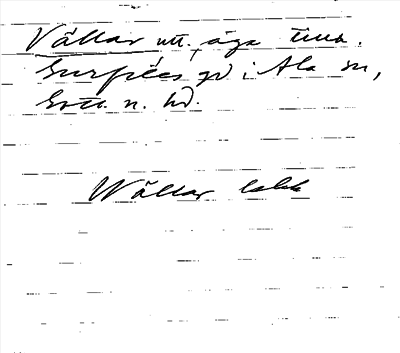 Vällar utt. äga tina.
Gurfiles gd i Ala sn,
Gotl. n. hd.
Wällar